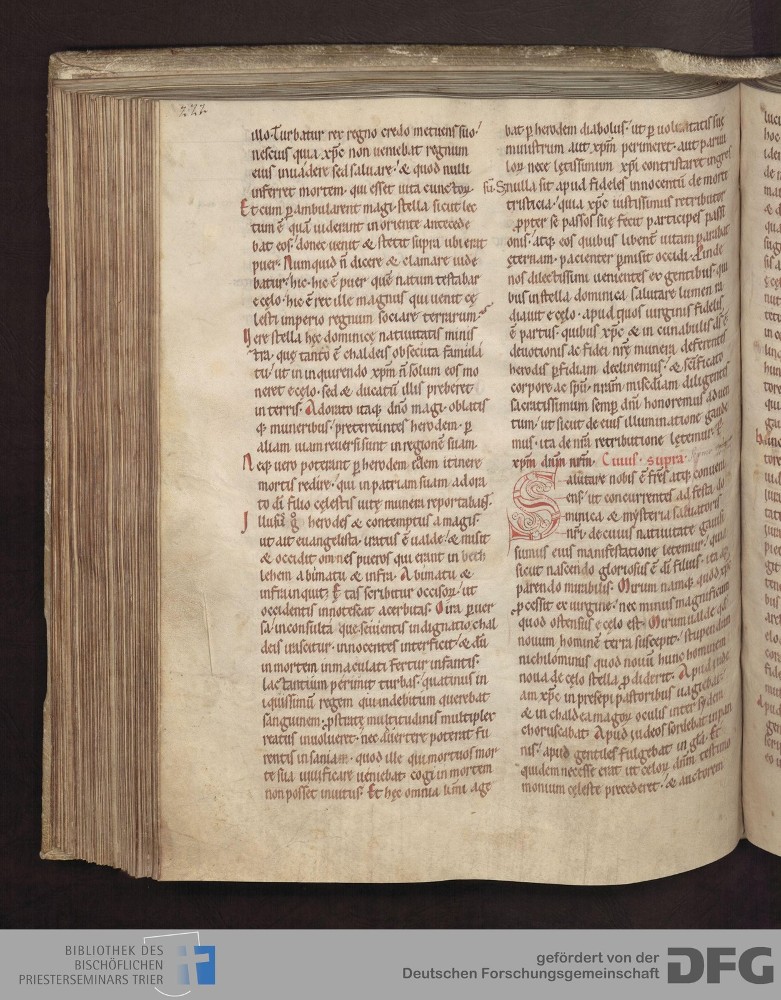 222
illo. Turbatur rex regno credo metuens suo.
nescius quia xp̅c non ueniebat regnum
eius inuadere sed saluare. & quod nulli
inferret mortem. qui esset uita cunctoꝝ
Et cum ꝑambularent magi. stella sicut lec
tum ē quā uiderunt in oriente antecede
bat eos. donec uenit & stetit supra ubi erat
puer. Numquid n̄ dicere & clamare uide
batur. hic. hic ē puer quē natum testabar
e cęlo. hic ē rex ille magnus qui uenit cę
lesti imperio regnum sociare terrarum.
Uere stella hęc dominicę natiuitatis minis
tra. quę tanto ē chaldeis obsecuta famula
tu. ut in inquirendo xp̅m n̄ solum eos mo
neret e cęlo. sed & ducatū illis preberet
in terris. Adorato itaq; dn̄o magi. oblatis
q; muneribus. pretereuntes herodem. ꝑ
aliam uiam reuersi sunt in regionē suam.
Neq; uero poterant ꝑ herodem eādem itinere
mortis redire. qui in patriam suam adora
to dī filio cęlestis uitę munera reportabaņ.
herodes & contemptus a magis.
ut ait euangelista. iratus ē ualde. & misit
& occidit omnes pueros qui erant in beth
lehem a bimatu & infra. A bimatu &
infra inquit. Etas scribitur occisoꝝ. ut
occidentis innotescat acerbitas. Mira ꝑuer
sa. inconsulta que seuientis indignatio. chal
deis irascitur. innocentes interficit. & dū
in mortem inmaculati fertur infantis.
lactantium perimit turbas. quatinus in
iquissimū regem qui indebitum querebat
sanguinem. pstratę multitudinis multiplex
reatus inuolueret. nec auertere poterat fu
rentis insaniam. quod ille qui mortuos mor
te sua uiuificare ueniebat. cogi in mortem
non posset inuitus. Et hęc omnia age
bat ꝑ herodem diabolus. ut ꝑ uoluntatis suę
ministrum aut xp̅m perimeret. aut paruu
loꝝ nece lętissimum xp̄i contristaret ingres
sū. S; nulla sit apud fideles innocentū de morte
tristicia. quia xp̅c iustissimus retributor
ꝓpter se passos suę fecit participes passi
onis. atq; eos quibus libenť uitam parabat
ęternam. pacienter ꝑmisit occidi. Proinde
nos dilectissimi uenientes ex gentibus. qui
bus in stella dominica salutare lumen ra
diauit e cęlo. apud quos uirginis fidelis
ē partus. quibus xp̅c & in cunabulis d̄s ē
deuotionis ac fidei nr̄ę munera deferentes
herodis ꝑfidiam declinemus. & scīficato
corpore ac spū. nr̄am misc̄diam diligentes
sacratissimum semꝑ dn̄i honoremus aduen
tum. ut sicut de eius illuminatione gaude
mus. ita de nr̄a retributione lętemur. ꝑ
xp̅m dn̄m nr̄m. Cuius supra.
Salutare nobis ē fr̄s atq; conueni
ens. ut concurrentes ad festa do
minica & mysteria saluatoris
nr̄i. de cuius natiuitate gauisi
sumus eius manifestatione letemur. quia
sicut nascendo gloriosus ē dī filius. ita ap
parendo mirabilis. Mirum namq; quod xp̅c
ꝓcessit ex uirgine. nec minus magnificum
quod ostensus e cęlo est. Mirum ualde qd
nouum hominē terra suscepit. stupendum
nichilominus quod nouū hunc hominem
noua de cęlo stella ꝓdiderit. Apud iude
am xp̅c in presepi pastoribus uagiebat.
& in chaldea magoꝝ oculis inter sydera
choruscabat. Apud iudeos sordebat in pan
nis. apud gentiles fulgebat in gl̄a. Et
quidem necesse erat ut celoꝝ dn̄m testimo
monium cęleste precederet. & auctorem
BIBLIOTHEK DES
BISCHÖFLICHEN
PRIESTERSEMINARS TRIER
gefördert von der
Deutschen Forschungsgemeinschaft
DFG